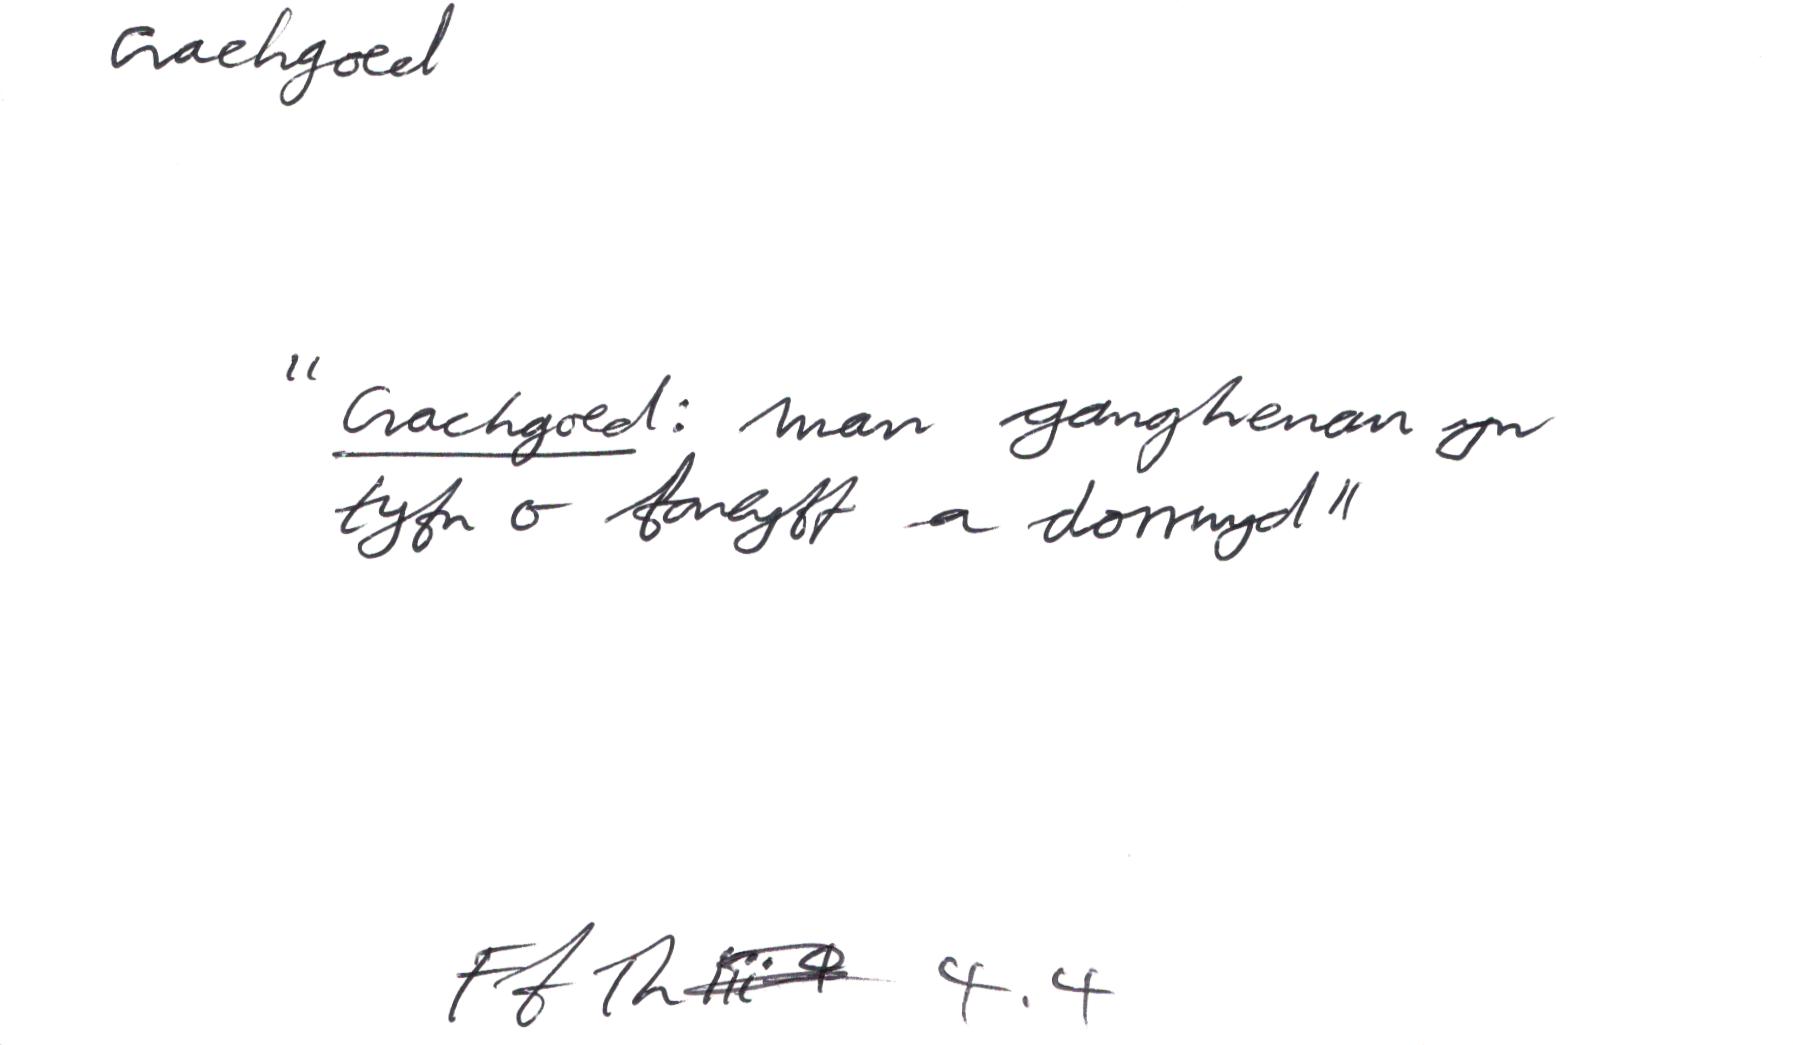 crachgoed
"Crachgoed: man ganghenau yn
tyfu o foncyff a dorrwyd"
Ff Th 4.4